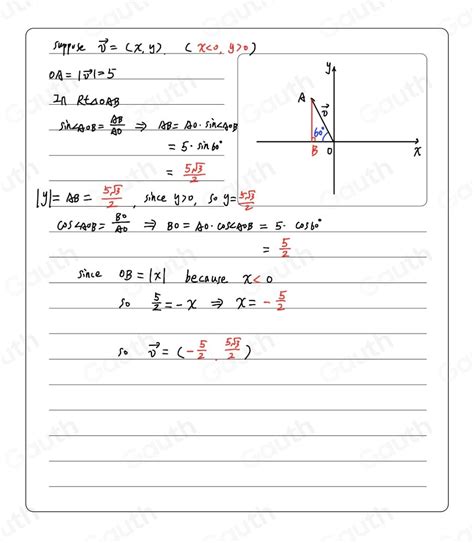 suppose v⃗ = (x, y). ( x<0, y>0 )
OA = |v⃗| = 5
In Rt△OAB
sin∠AOB = AB/AO ⇒ AB = AO · sin∠AOB
= 5 · sin 60°
= 5√3/2
|y| = AB = 5√3/2 , since y>0, so y = 5√3/2
cos∠AOB = BO/AO ⇒ BO = AO · cos∠AOB = 5 · cos60°
= 5/2
since OB = |x| because x < 0
so 5/2 = -x ⇒ x = - 5/2
so v⃗ = (- 5/2 , 5√3/2)
y
A
v⃗
60°
B O x
Gauth